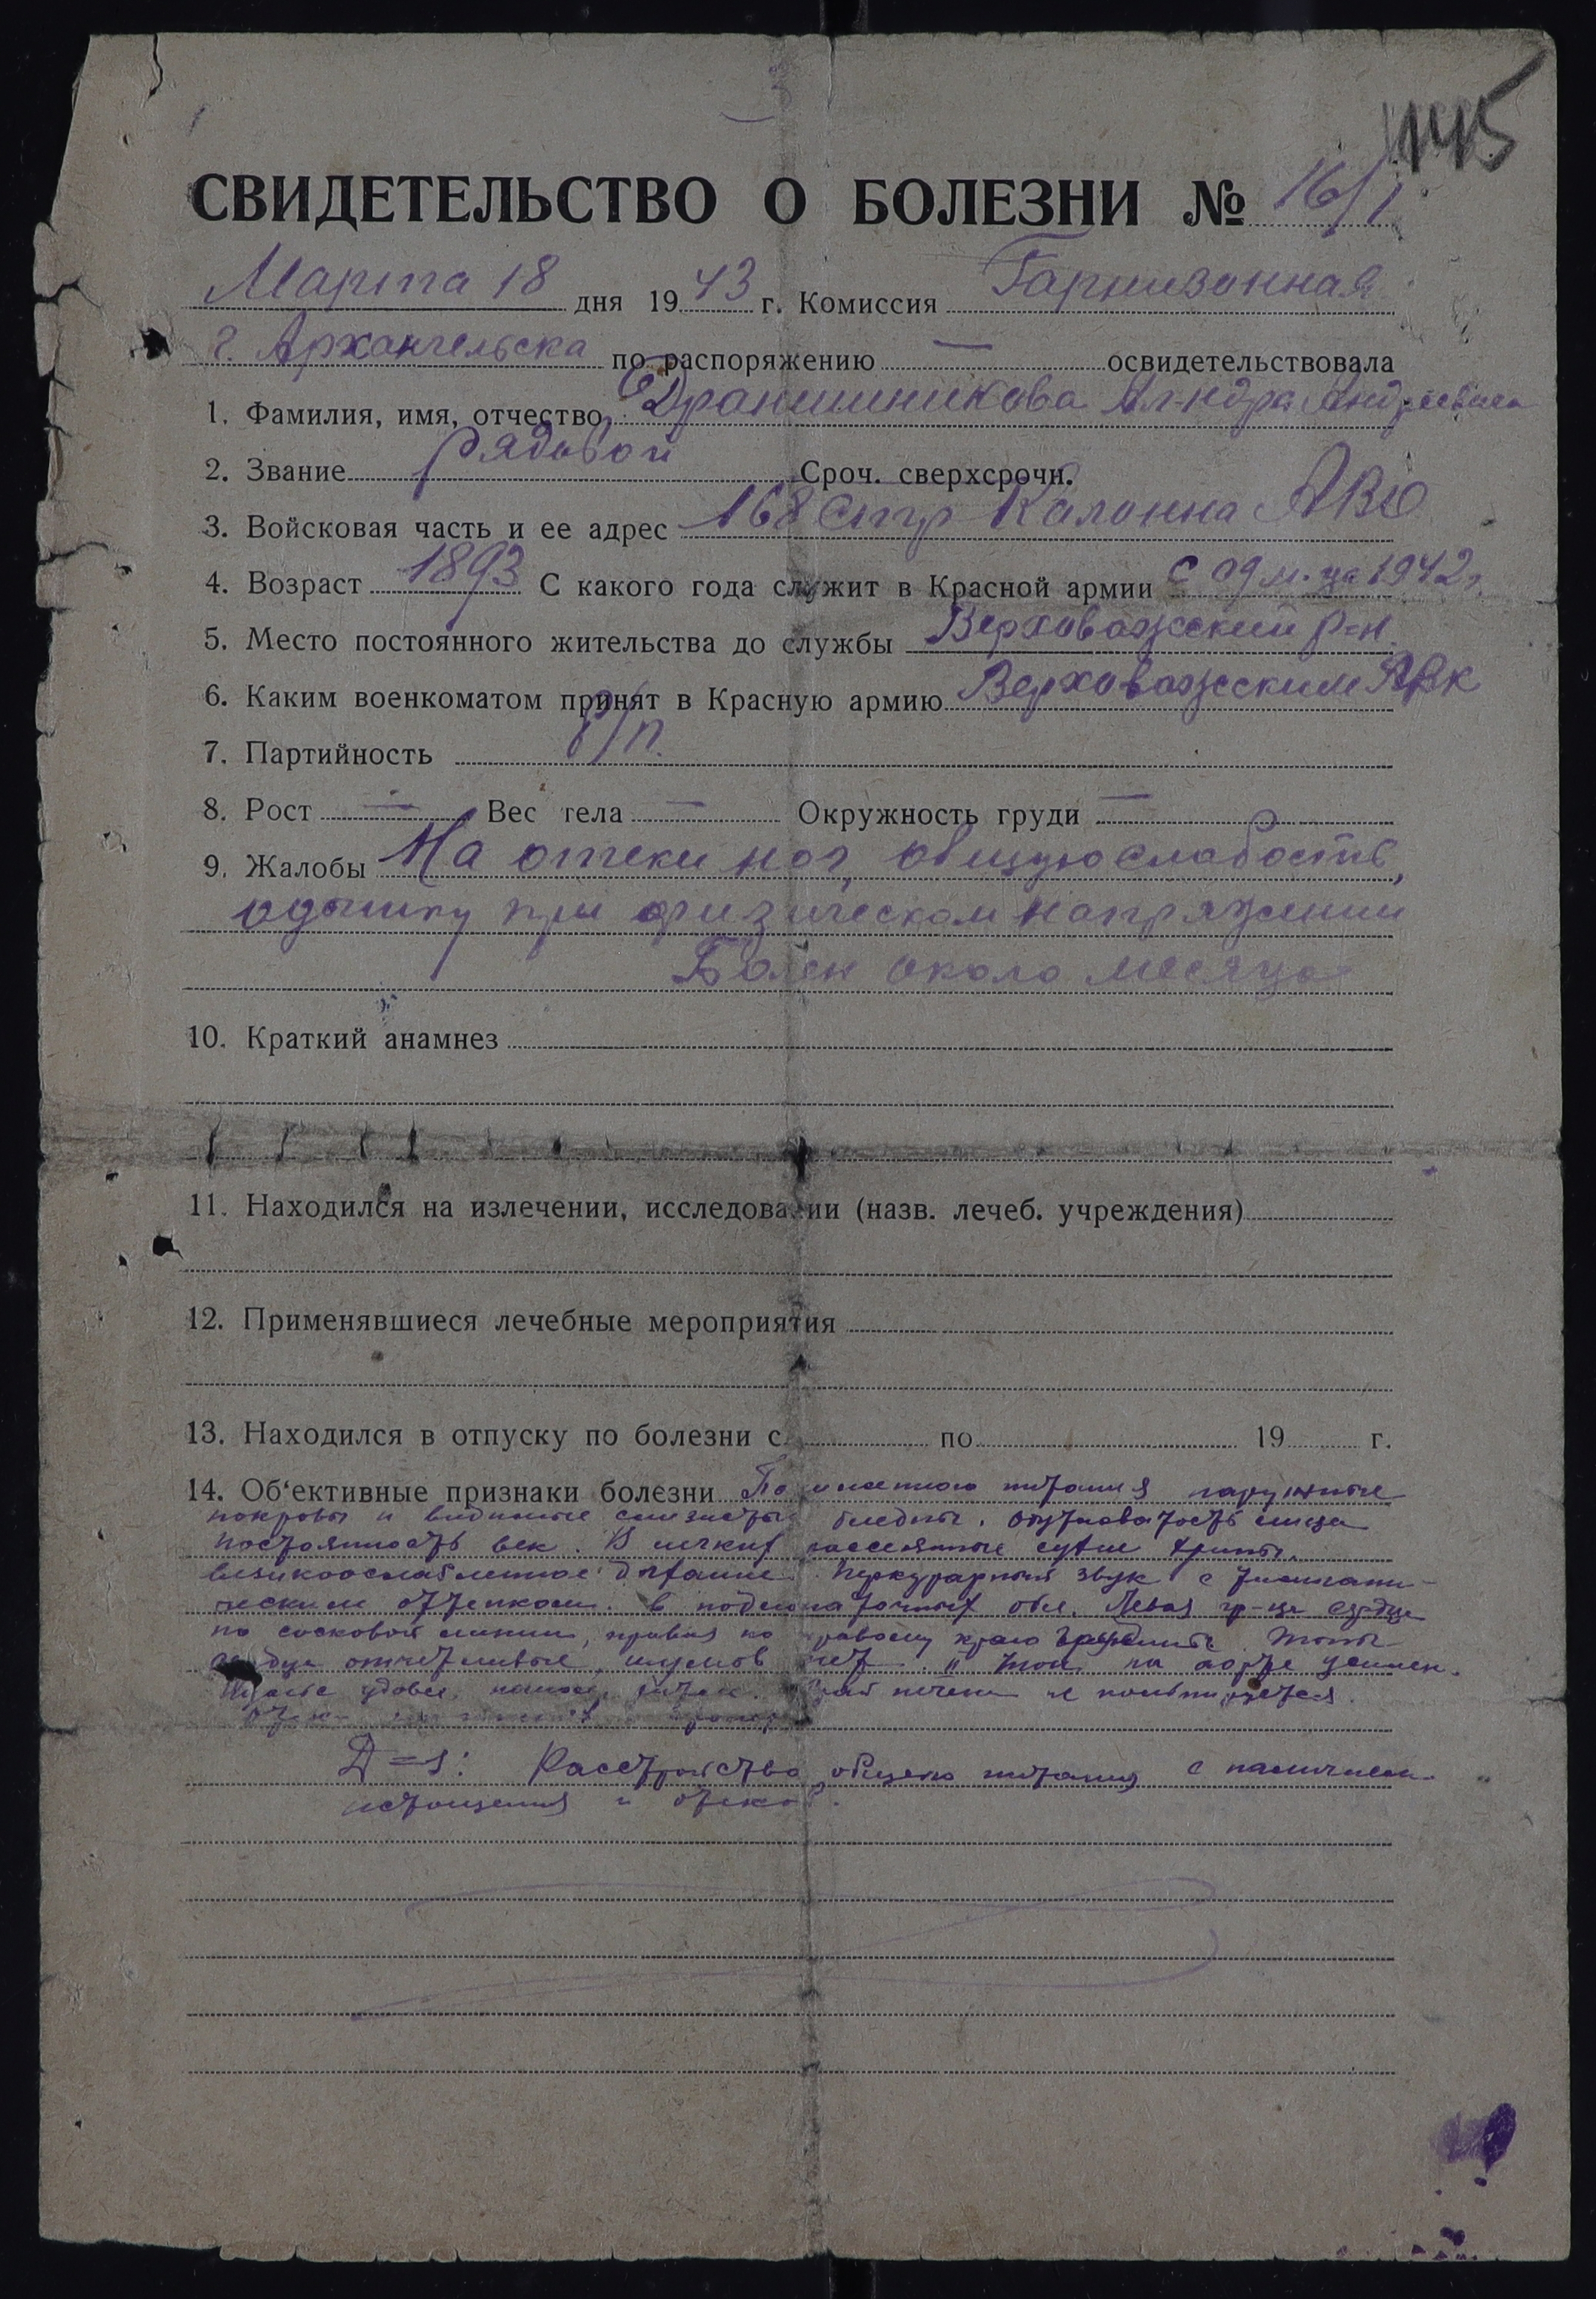 145
СВИДЕТЕЛЬСТВО О БОЛЕЗНИ № 16/1
Марта 18 дня 1943 г. Комиссия Гарнизонная
г. Архангельска по распоряжению — освидетельствовала
1. Фамилия, имя, отчество Дранишникова Ал-ндра Андреевича
2. Звание рядовой Сроч. сверхсрочн.
3. Войсковая часть и ее адрес 168 стр Колонна АВО
4. Возраст 1893 С какого года служит в Красной армии с 09 м-ца 1942 г.
5. Место постоянного жительства до службы Верховажский р-н.
6. Каким военкоматом принят в Красную армию Верховажским РВК
7. Партийность б/п.
8. Рост — Вес тела — Окружность груди —
9. Жалобы На отеки ног, общую слабость,
одышку при физическом напряжении
Болен около месяца
10. Краткий анамнез
11. Находился на излечении, исследовании (назв. лечеб. учреждения)
12. Применявшиеся лечебные мероприятия
13. Находился в отпуску по болезни с по 19 г.
14. Об‘ективные признаки болезни питания наружные
покровы и видимые слизистые бледны. Одутловатость лица
век. В легких рассеянные сухие хрипы,
дыхание. Перкуторный звук с
оттенком. в подлопаточных обл. Левая гр-ца сердца
по сосковой линии, правая по правому краю грудины. Тоны
сердца отчетливые, шумов нет. II тон на аорте усилен.
Пульс удовл. Край печени не пальпируется.
D=s: Расстройство общего питания с наличием
истощения и отеков.